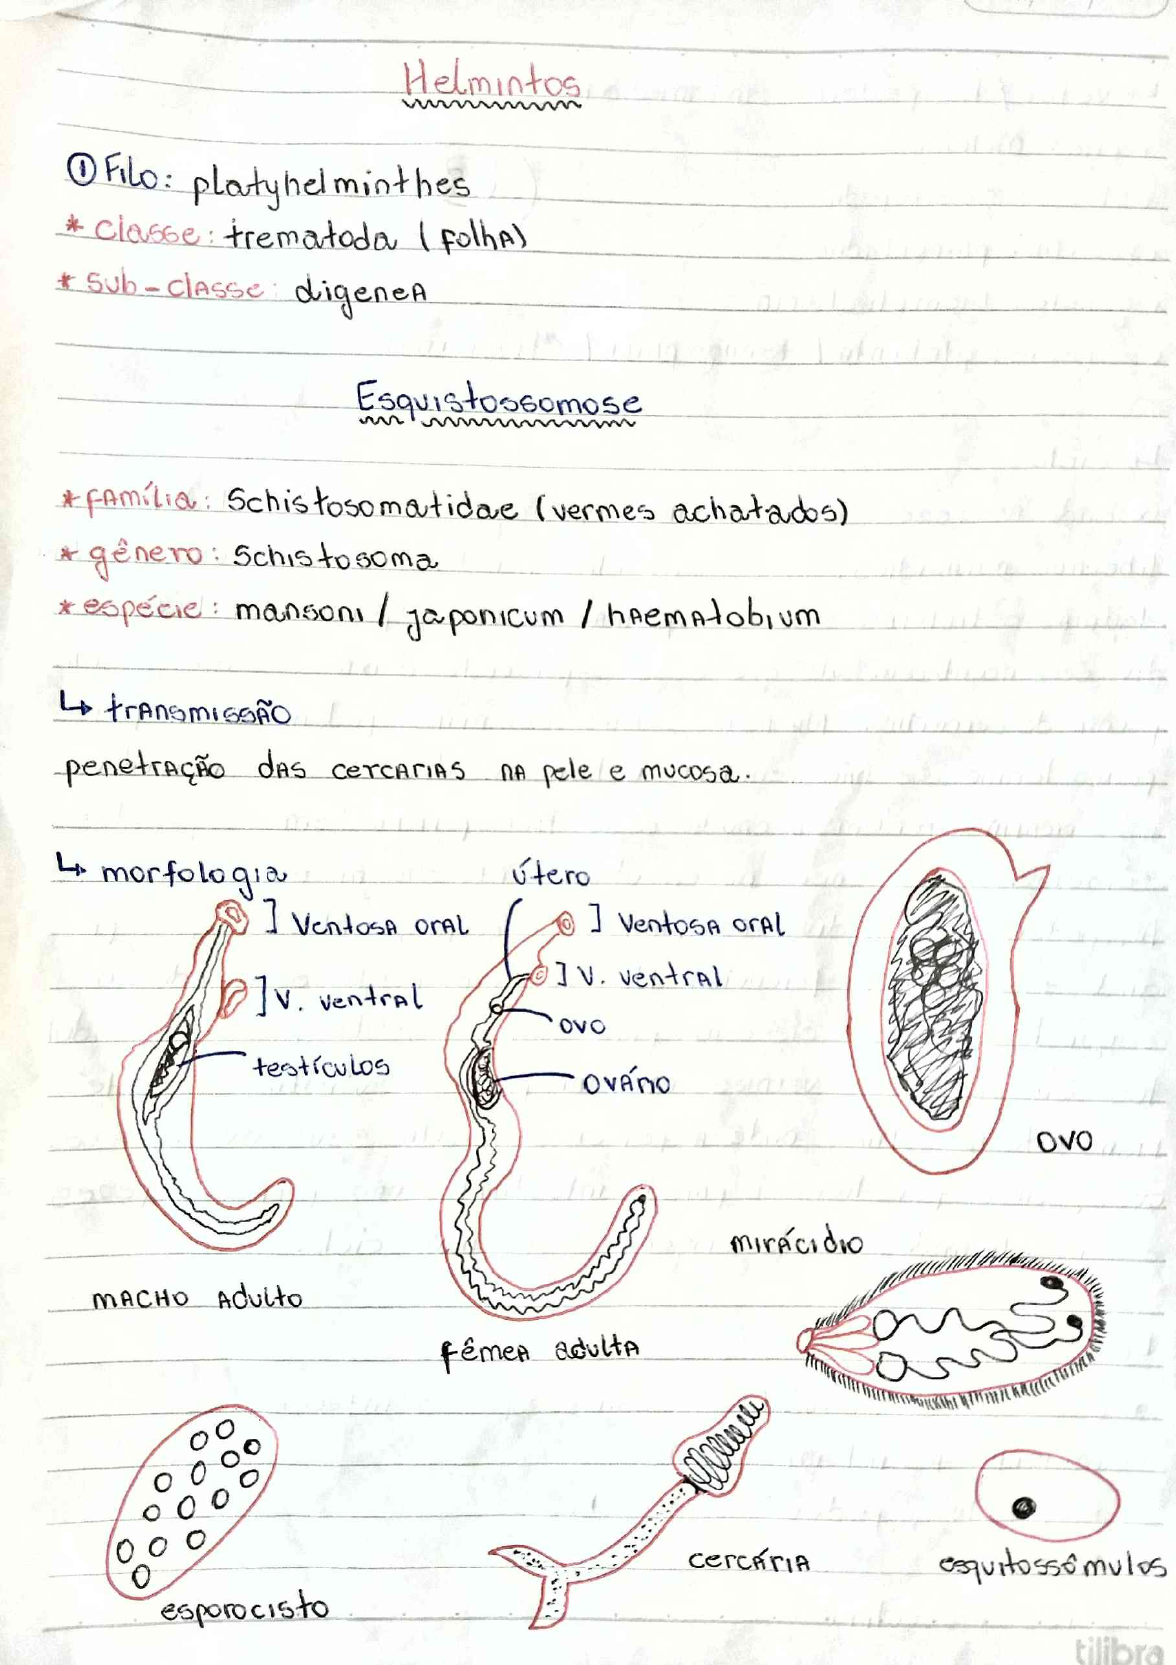 Helmintos
① Filo: platyhelminthes
* classe: trematoda (folha)
* sub-classe: digenea
Esquistossomose
* família: Schistosomatidae (vermes achatados)
* gênero: Schistosoma
* espécie: mansoni / japonicum / haematobium
↳ transmissão
penetração das cercarias na pele e mucosa.
↳ morfologia
útero
] Ventosa oral
] Ventosa oral
] V. ventral
] V. ventral
ovo
testículos
ovário
ovo
mirácidio
macho adulto
fêmea adulta
cercária
esquitossômulos
esporocisto
tilibra